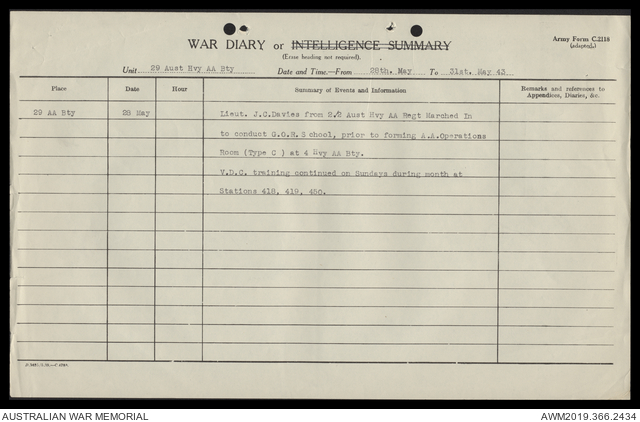 WAR DIARY or INTELLIGENCE SUMMARY
Army Form C.2118
(adapted.)
(Erase heading not required).
Unit 29 Aust Hvy AA Bty Date and Time.—From 28th. May To 31st. May 43
Place Date Hour Summary of Events and Information Remarks and references to Appendices, Diaries, &c.
29 AA Bty 28 May Lieut. J.C.Davies from 2/2 Aust Hvy AA Regt Marched In
to conduct G.O.R.S chool, prior to forming A.A.Operations
Room (Type C ) at 4 Hvy AA Bty.
V.D.C. training continued on Sundays during month at
Stations 418, 419, 450.
AUSTRALIAN WAR MEMORIAL AWM2019.366.2434